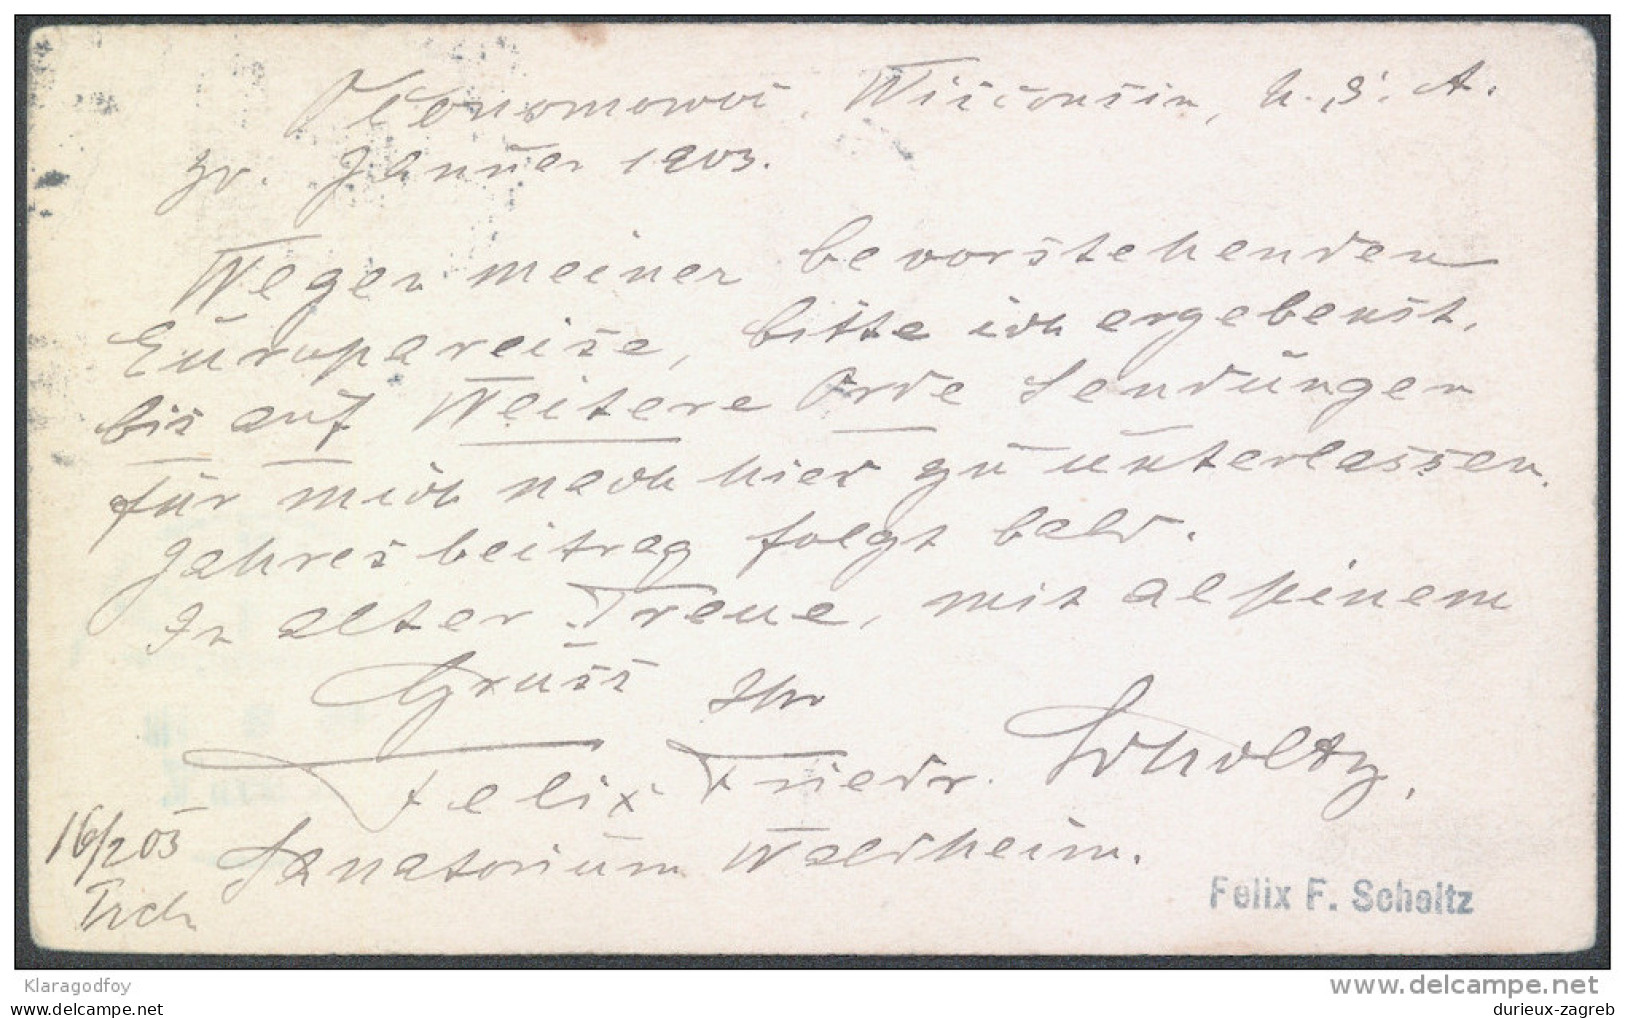 Oconomowoc, Wisconsin, U.S.A.
30. Januar 1903.
Wegen meiner bevorstehenden
Europareise, bitte ich ergebenst,
bis auf Weitere Orde Sendungen
für mich nach hier zu unterlassen.
Jahresbeitrag folgt bald.
In alter Treue, mit alpinem
Gruss Ihr
Felix Friedr. Scholtz,
Sanatorium Waldheim.
16/2 03
Felix F. Scholtz
Klaragodfoy
www.delcampe.net
durieux-zagreb